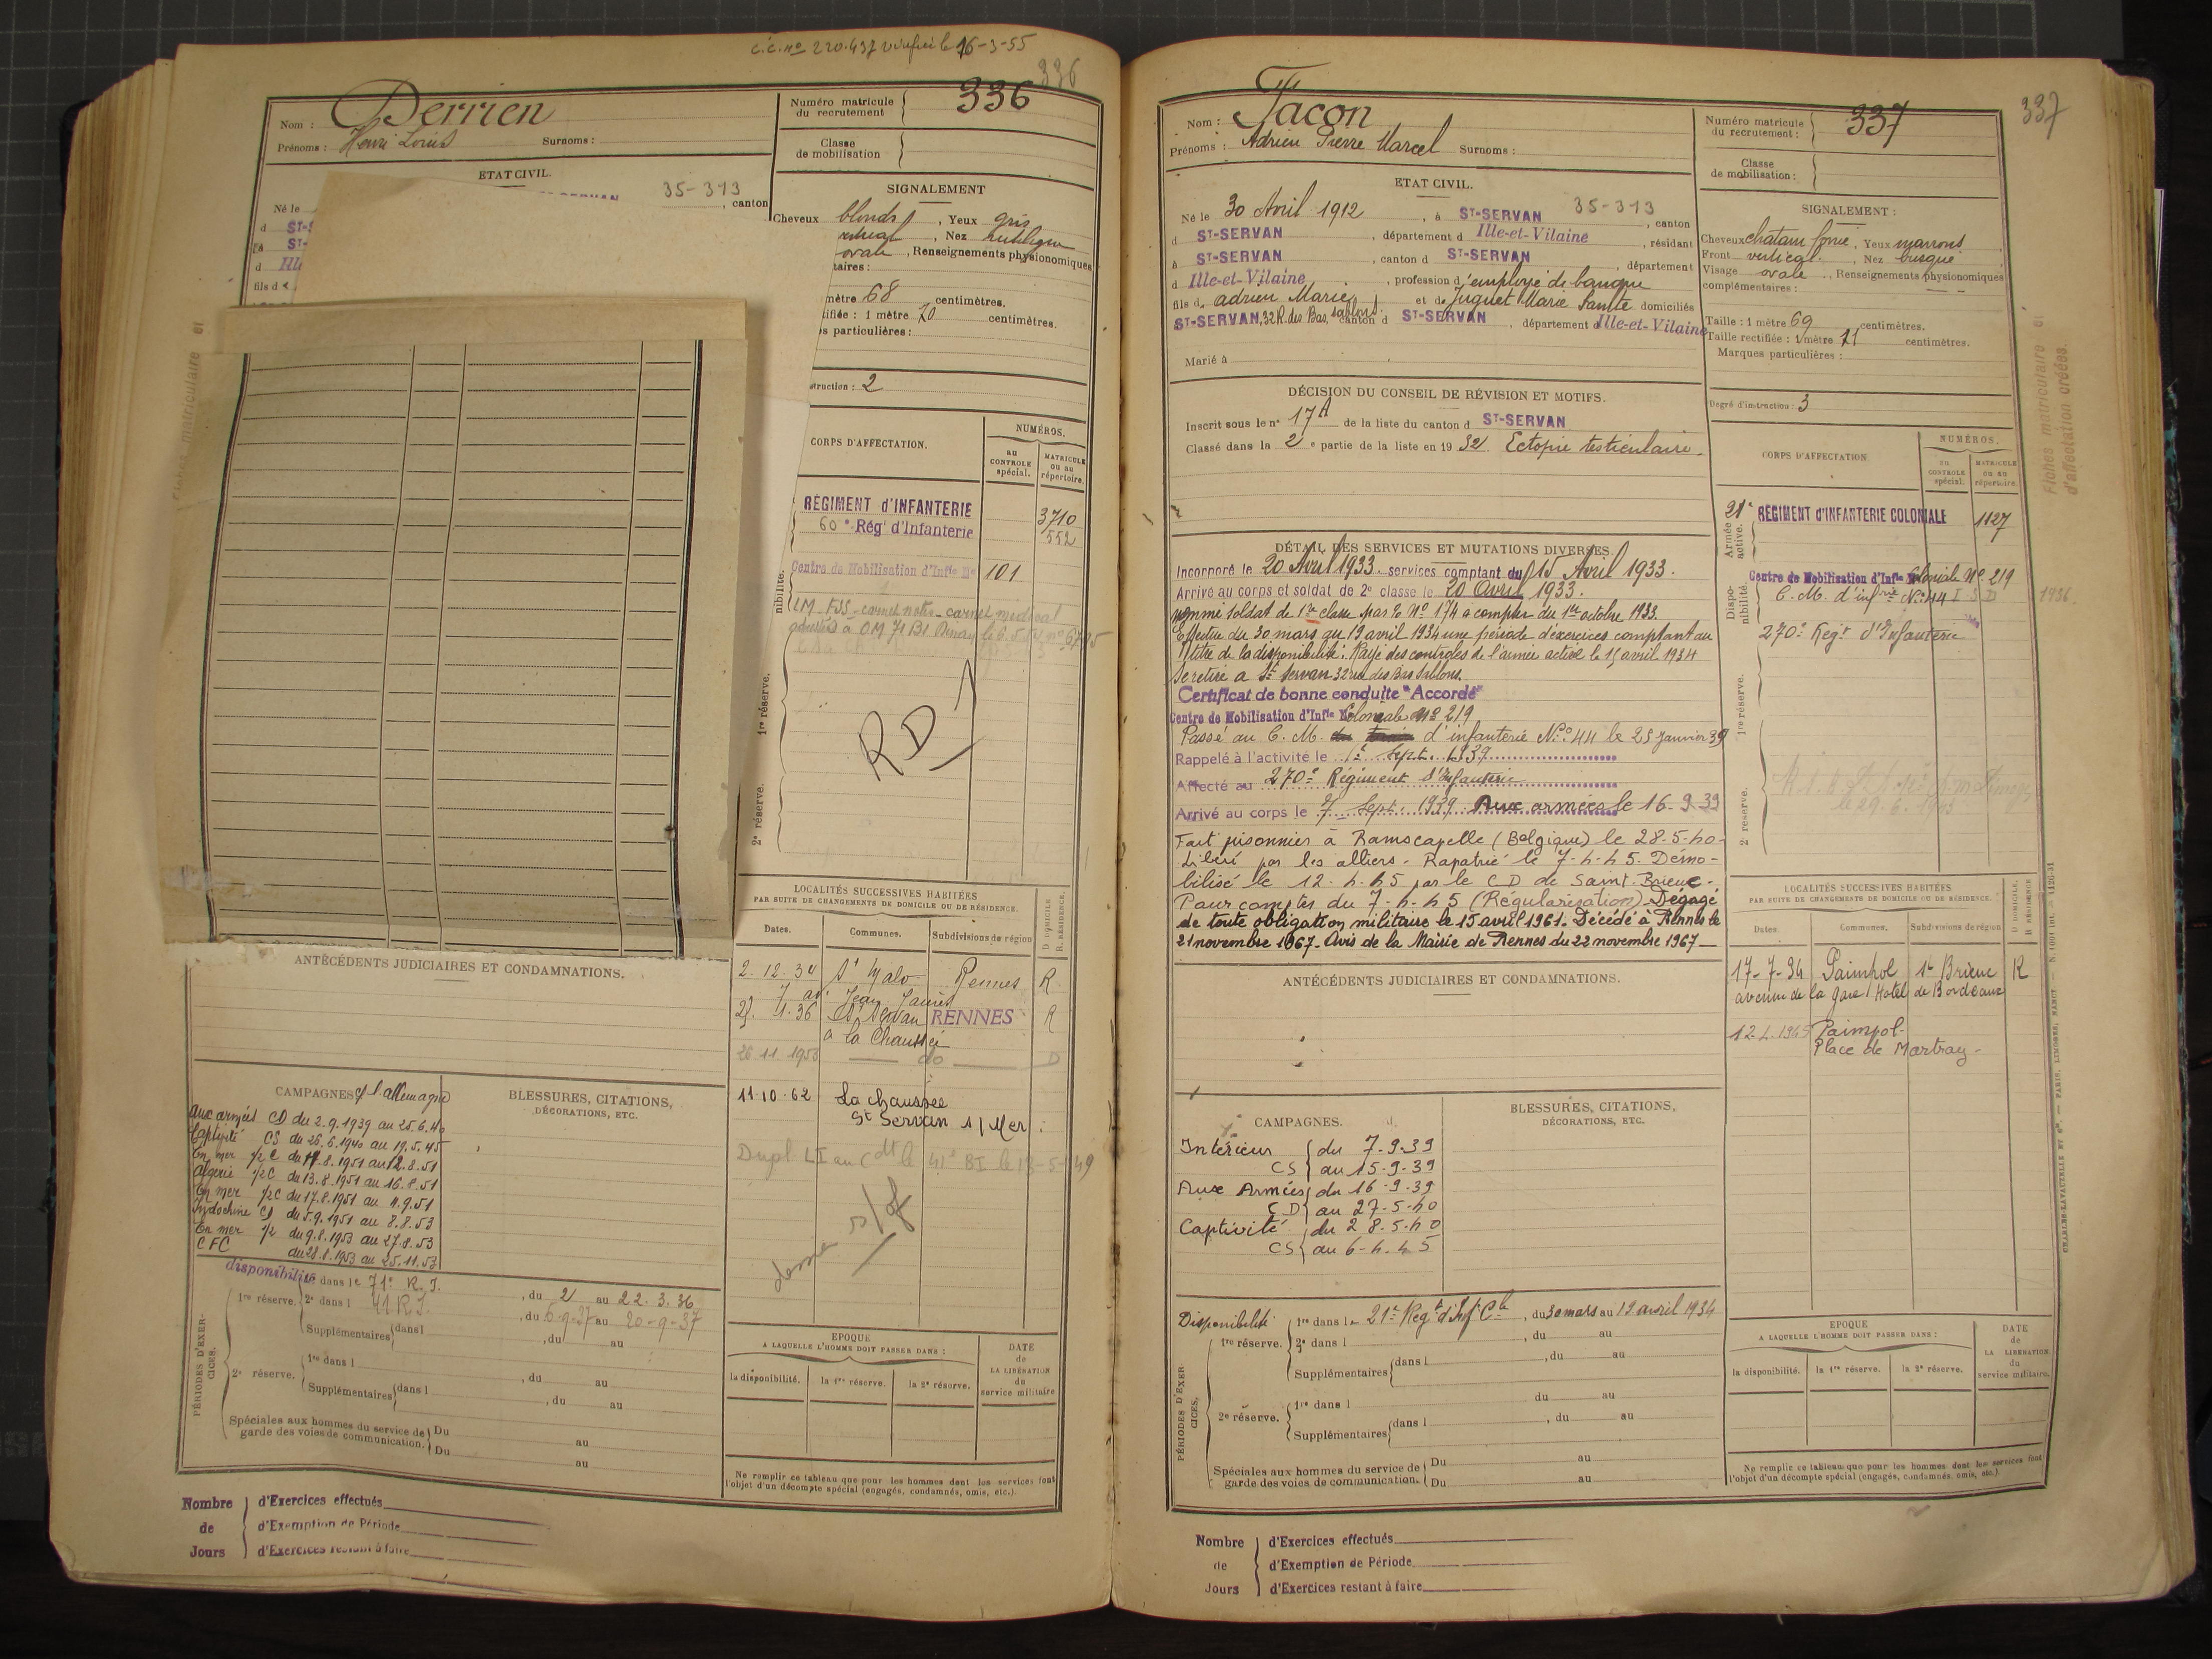 C.C. no 220.437 le 16-3-55
336
Nom : Derrien
Prénoms : Henri Louis Surnoms :
Numéro matricule du recrutement 336
Classe de mobilisation
ETAT CIVIL.
35-313
Né le
, canton
d ST-S
à ST-
d Ille
fils d
SIGNALEMENT
Cheveux blonds, Yeux gris
vertical, Nez rectiligne
ovale, Renseignements physionomiques
taires :
mètre 68 centimètres.
ifiée : 1 mètre 70 centimètres.
s particulières :
struction : 2
CORPS D'AFFECTATION.
NUMÉROS.
au CONTROLE spécial.
MATRICULE ou au répertoire.
RÉGIMENT d'INFANTERIE 3710
60e Régt d'Infanterie 552
Centre de Mobilisation d'Infie No 101
nibilité.
1re réserve.
2e réserve.
RD
LOCALITÉS SUCCESSIVES HABITÉES
PAR SUITE DE CHANGEMENTS DE DOMICILE OU DE RÉSIDENCE.
D DOMICILE. R RÉSIDENCE.
Dates. Communes. Subdivisions de région
2.12.34 St Malo Rennes R
7 av. Jean Jaurès
1.36 St Servan RENNES R
à la Chaussée
26.11.1953 do D
11.10.62 La chaussée
St Servan s/Mer
ANTÉCÉDENTS JUDICIAIRES ET CONDAMNATIONS.
CAMPAGNES c/ l'allemagne
BLESSURES, CITATIONS,
DÉCORATIONS, ETC.
aux armées CD du 2.9.1939 au 25.6.40
Captivité CS du 26.6.1940 au 19.5.45
En mer 1/2 C du 11.8.1951 au 12.8.51
Algérie 1/2 C du 13.8.1951 au 16.8.51
En mer 1/2 C du 17.8.1951 au 4.9.51
Indochine CD du 5.9.1951 au 8.8.53
En mer 1/2 du 9.8.1953 au 27.8.53
CFC du 28.8.1953 au 25.11.53
disponibilité dans le 71e R.I., du 2 au 22.3.36
1re réserve. 2e dans l 41 R.I., du 6-9-37 au 20-9-37
Supplémentaires dans l , du au
PÉRIODES D'EXERCICES.
2e réserve. 1re dans l , du au
Supplémentaires dans l , du au
Spéciales aux hommes du service de garde des voies de communication. Du au
Du au
EPOQUE
A LAQUELLE L'HOMME DOIT PASSER DANS :
la disponibilité. la 1re réserve. la 2e réserve.
DATE de LA LIBÉRATION du service militaire
Ne remplir ce tableau que pour les hommes dont les services font
l'objet d'un décompte spécial (engagés, condamnés, omis, etc.).
Nombre de Jours
d'Exercices effectués
d'Exemption de Période
d'Exercices restant à faire
337
Nom : Jacon
Prénoms : Adrien Pierre Marcel Surnoms :
Numéro matricule du recrutement : 337
Classe de mobilisation :
ETAT CIVIL.
Né le 30 Avril 1912, à ST-SERVAN 35-313, canton
d ST-SERVAN, département d Ille-et-Vilaine, résidant
à ST-SERVAN, canton d ST-SERVAN, département
d Ille-et-Vilaine, profession d'employé de banque
fils d. adrien Marie et de Juguet Marie Sainte domiciliés
ST-SERVAN, 32 R. des Bas. sablons. canton d ST-SERVAN, département d Ille-et-Vilaine
Marié à
SIGNALEMENT :
Cheveux chatain foncé, Yeux marrons
Front vertical. Nez busqué
Visage ovale, Renseignements physionomiques
complémentaires :
Taille : 1 mètre 69 centimètres.
Taille rectifiée : 1 mètre 71 centimètres.
Marques particulières :
Degré d'instruction : 3
DÉCISION DU CONSEIL DE RÉVISION ET MOTIFS.
Inscrit sous le no 17A de la liste du canton d ST-SERVAN
Classé dans la 2e partie de la liste en 1932 Ectopie testiculaire.
DÉTAIL DES SERVICES ET MUTATIONS DIVERSES.
Incorporé le 20 Avril 1933. services comptant du 15 Avril 1933.
Arrivé au corps et soldat de 2e classe le 20 Avril 1933.
nommé soldat de 1re classe par No 174 à compter du 1er octobre 1933.
Effectue du 30 mars au 19 avril 1934 une période d'exercices comptant au
titre de la disponibilité. Rayé des contrôles de l'armée active le 15 avril 1934
Se retire à St Servan 32 rue des Bas Sablons.
Certificat de bonne conduite "Accordé"
Centre de Mobilisation d'Infie Coloniale No 219
Passé au C. M. d'infanterie No 44 le 25 Janvier 39
Rappelé à l'activité le 1er Sept. 1939
Affecté au 270e Régiment d'Infanterie
Arrivé au corps le 7 Sept. 1939. Aux armées le 16-9-39
Fait prisonnier à Ramscapelle (Belgique) le 28-5-40
Libéré par les alliers - Rapatrié le 7-4-45. Démo-
bilisé le 12-4-45 par le CD de Saint-Brieuc -
Pour compter du 7-4-45 (Régularisation). Dégagé
de toute obligation militaire le 15 avril 1961. Décédé à Rennes le
21 novembre 1967 - Avis de la Mairie de Rennes du 22 novembre 1967 -
CORPS D'AFFECTATION
NUMÉROS.
au CONTROLE spécial.
MATRICULE ou au répertoire.
Armée active.
21e RÉGIMENT d'INFANTERIE COLONIALE 1127
Disponibilité
Centre de Mobilisation d'Infie Coloniale No 219
C. M. d'infrie No 44 I S D 1936
270e Regt d'Infanterie
1re réserve.
2e réserve.
Fiches matriculaire et
d'affectation créées.
LOCALITÉS SUCCESSIVES HABITÉES
PAR SUITE DE CHANGEMENTS DE DOMICILE OU DE RÉSIDENCE.
D DOMICILE, R RÉSIDENCE
Dates. Communes. Subdivisions de région
17-7-34 Paimpol St Brieuc R
avenue de la Gare Hotel de Bordeaux
12-4-1945 Paimpol-
Place de Martray-
ANTÉCÉDENTS JUDICIAIRES ET CONDAMNATIONS.
CAMPAGNES.
BLESSURES, CITATIONS,
DÉCORATIONS, ETC.
Intérieur du 7-9-39
CS au 15-9-39
Aux Armées du 16-9-39
CD au 27-5-40
Captivité du 28-5-40
CS au 6-4-45
Disponibilité 1re dans le 21e Regt d'Inf Cle, du 30 mars au 19 avril 1934
1re réserve. 2e dans l , du au
Supplémentaires dans l , du au
PÉRIODES D'EXERCICES,
du au
2e réserve. 1re dans l
Supplémentaires dans l , du au
Spéciales aux hommes du service de garde des voies de communication. Du au
Du au
EPOQUE
A LAQUELLE L'HOMME DOIT PASSER DANS :
la disponibilité. la 1re réserve. la 2e réserve.
DATE de LA LIBÉRATION du service militaire.
Ne remplir ce tableau que pour les hommes dont les services font
l'objet d'un décompte spécial (engagés, condamnés, omis, etc.)
Nombre de Jours
d'Exercices effectués
d'Exemption de Période
d'Exercices restant à faire